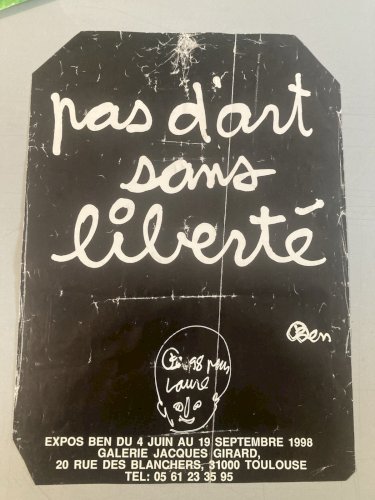 pas d'art
sans
liberté
Ben
Ben 98 pour
Laure
EXPOS BEN DU 4 JUIN AU 19 SEPTEMBRE 1998
GALERIE JACQUES GIRARD,
20 RUE DES BLANCHERS, 31000 TOULOUSE
TEL: 05 61 23 35 95